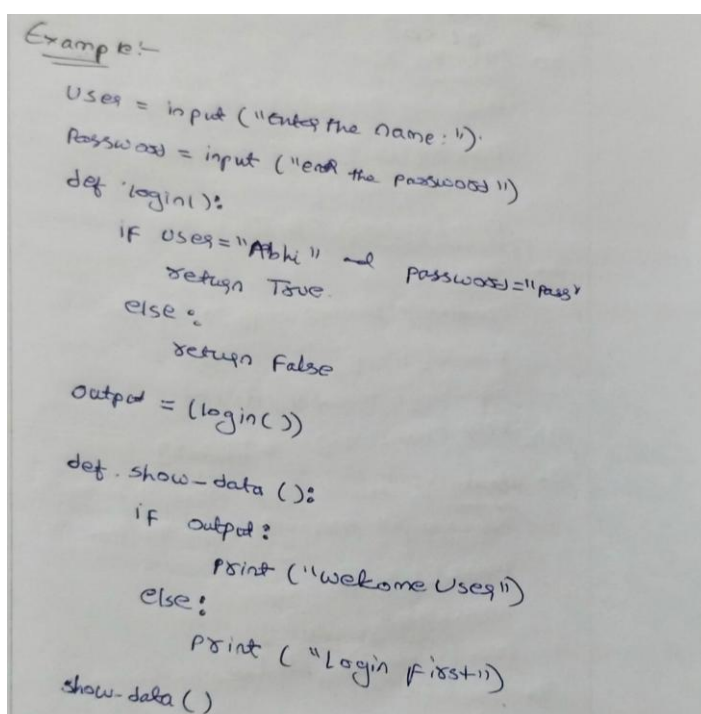 Example:-
User = input ("Enter the name:").
Password = input ("entr the password")
def login():
if user="Abhi" and password="pass"
return True.
else:
return False
output = (login())
def show-data ():
if output:
print ("Welcome User")
else:
print ("Login First")
show-data ()